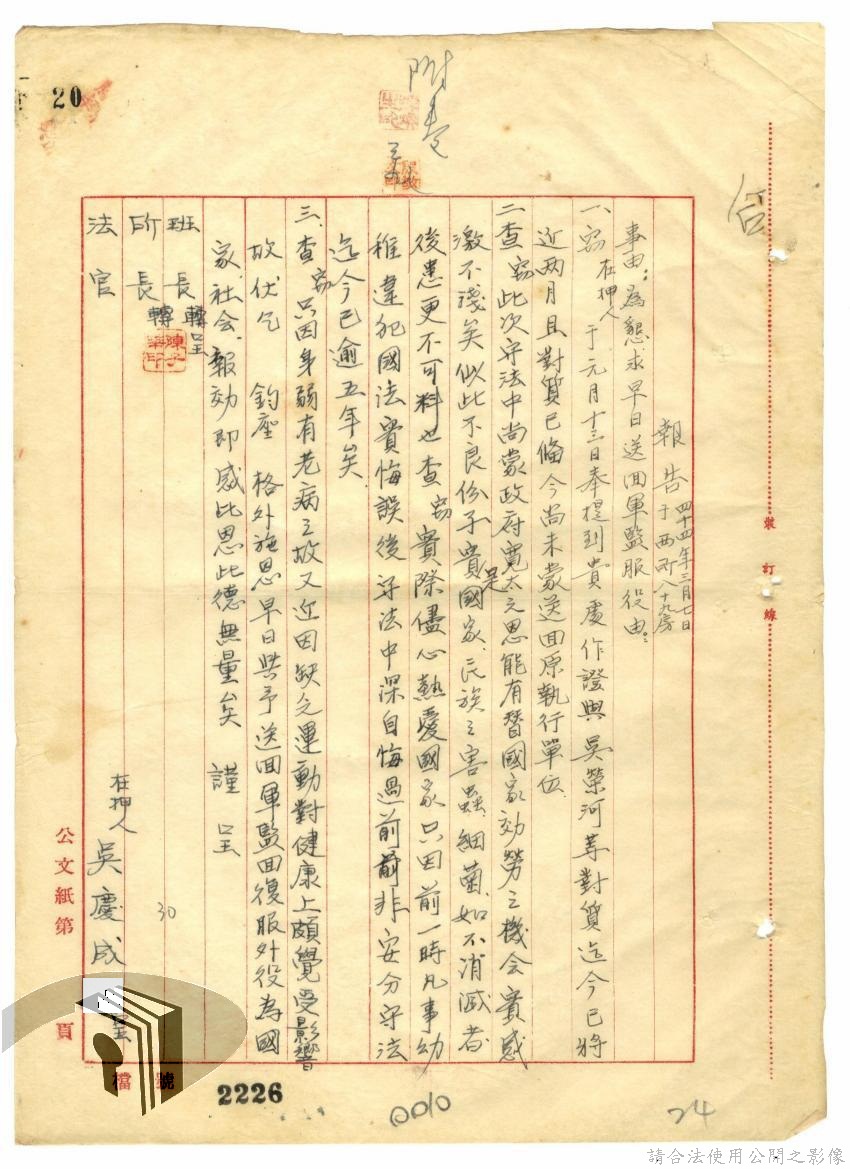 20
附卷
報告 四十四年三月七日
于西所八十九房
事由:為懇求早日送回軍監服役由
一、窃在押人于元月十三日奉提到貴處作證與吳榮河等對質迄今已將
近兩月且對質已備今尚未蒙送回原執行單位
二查窃此次守法中尚蒙政府寬大之恩能有替國家効勞之機會實感
激不殘矣似此不良份子實是國家、民族之害蟲、細菌、如不消滅者、
後患更不可料也查窃實際儘心熱愛國家只因前一時凡事幼
稚違犯國法實悔誤後守法中深自悔過前前非安分守法
迄今已逾五年矣
三、查窃只因身弱有老病之故又近因缺乏運動對健康上頗覺受影響
故伏乞 鈞座 格外施恩早日與予送回軍監回復服外役為國
家、社會、報効即感此恩此德無量矣 謹呈
班長轉呈
所長轉
法官
在押人 吳慶成 呈
30
裝訂線
公文紙第 頁
檔號
2226
0010
24
請合法使用公開之影像